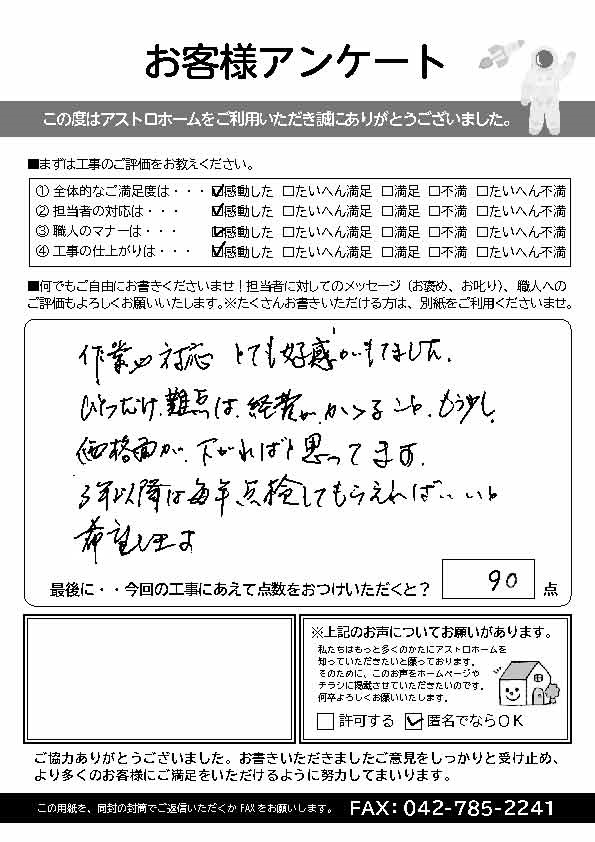 お客様アンケート
この度はアストロホームをご利用いただき誠にありがとうございました。
■まずは工事のご評価をお教えください。
① 全体的なご満足度は・・・☑感動した □たいへん満足 □満足 □不満 □たいへん不満
② 担当者の対応は・・・ ☑感動した □たいへん満足 □満足 □不満 □たいへん不満
③ 職人のマナーは・・・ ☑感動した □たいへん満足 □満足 □不満 □たいへん不満
④ 工事の仕上がりは・・・ ☑感動した □たいへん満足 □満足 □不満 □たいへん不満
■何でもご自由にお書きくださいませ！担当者に対してのメッセージ（お褒め、お叱り）、職人への
ご評価もよろしくお願いいたします。※たくさんお書きいただける方は、別紙をご利用くださいませ。
作業の対応 とても好感がもてました。
ひとつだけ、難点は、経費がかかること、もう少し
価格面が、下がればと思ってます。
3年以降は毎年点検してもらえればいいと
希望します
最後に・・今回の工事にあえて点数をおつけいただくと？ 90 点
※上記のお声についてお願いがあります。
私たちはもっと多くのかたにアストロホームを
知っていただきたいと願っております。
そのために、このお声をホームページや
チラシに掲載させていただきたいのです。
何卒よろしくお願いいたします。
□許可する ☑匿名でならＯＫ
ご協力ありがとうございました。お書きいただきましたご意見をしっかりと受け止め、
より多くのお客様にご満足をいただけるように努力してまいります。
この用紙を、同封の封筒でご返信いただくか FAX をお願いします。 FAX：042-785-2241